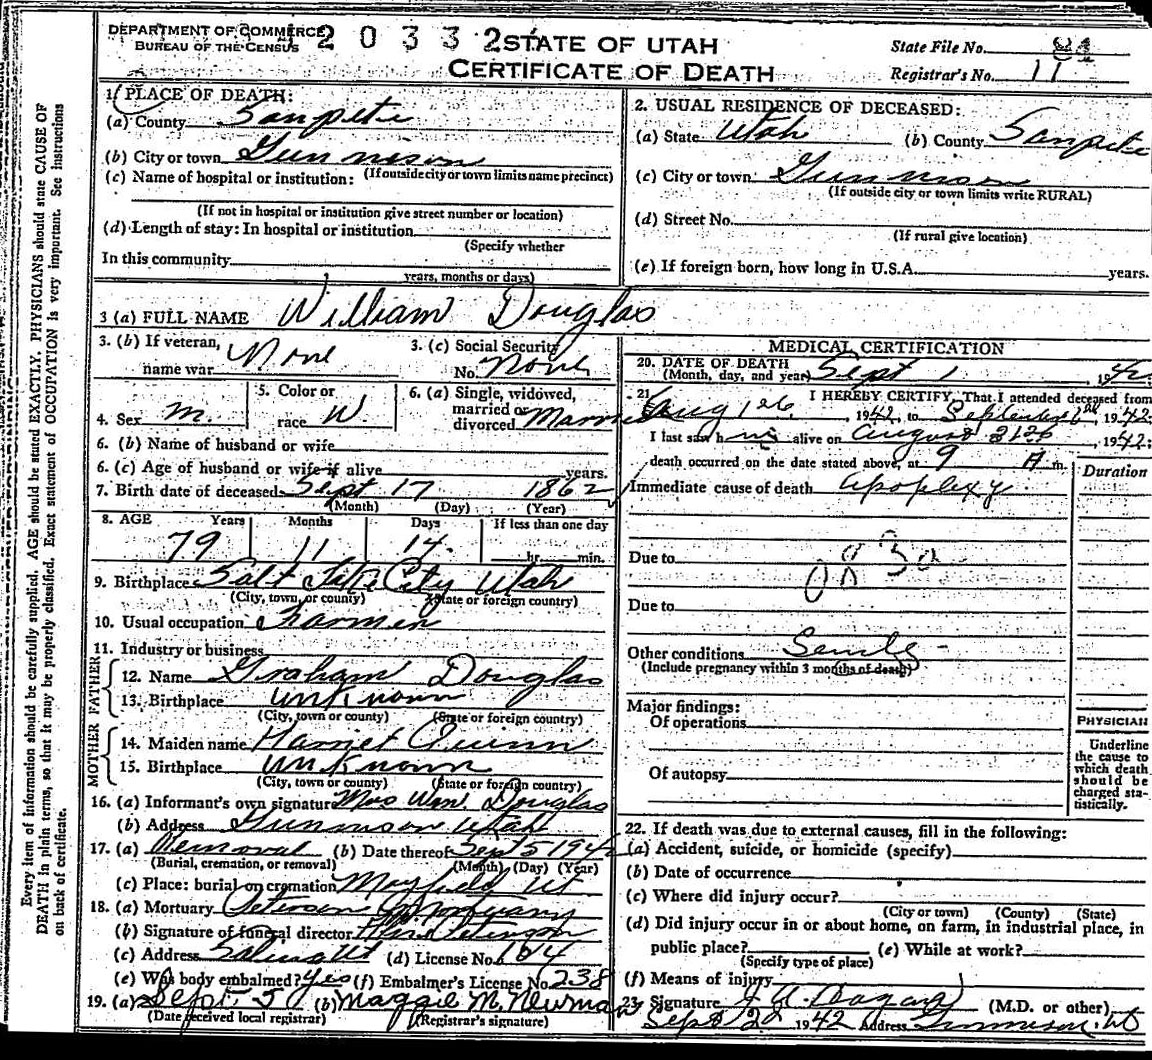 DEPARTMENT OF COMMERCE
BUREAU OF THE CENSUS
2 0 3 3 2
STATE OF UTAH
CERTIFICATE OF DEATH
State File No. 84
Registrar's No. 11
Every item of information should be carefully supplied. AGE should be stated EXACTLY. PHYSICIANS should state CAUSE OF
DEATH in plain terms, so that it may be properly classified. Exact statement of OCCUPATION is very important. See instructions
on back of certificate.
1. PLACE OF DEATH:
(a) County Sanpete
(b) City or town Gunnison
(If outside city or town limits name precinct)
(c) Name of hospital or institution:
(If not in hospital or institution give street number or location)
(d) Length of stay: In hospital or institution
(Specify whether
In this community
years, months or days)
2. USUAL RESIDENCE OF DECEASED:
(a) State Utah (b) County Sanpete
(c) City or town Gunnison
(If outside city or town limits write RURAL)
(d) Street No.
(If rural give location)
(e) If foreign born, how long in U.S.A. years.
3 (a) FULL NAME William Douglas
3. (b) If veteran, name war None
3. (c) Social Security No. None
4. Sex M.
5. Color or race W
6. (a) Single, widowed, married or divorced Married
6. (b) Name of husband or wife
6. (c) Age of husband or wife if alive years.
7. Birth date of deceased Sept 17 1862
(Month) (Day) (Year)
8. AGE Years Months Days If less than one day
79 11 14 hr. min.
9. Birthplace Salt Lake City Utah
(City, town, or county) (State or foreign country)
10. Usual occupation Farmer
11. Industry or business
FATHER
12. Name Graham Douglas
13. Birthplace unknown
(City, town or county) (State or foreign country)
MOTHER
14. Maiden name Harriet Quinn
15. Birthplace unknown
(City, town or county) (State or foreign country)
16. (a) Informant's own signature Mrs Wm. Douglas
(b) Address Gunnison Utah
17. (a) Removal (b) Date thereof Sep 5 1942
(Burial, cremation, or removal) (Month) (Day) (Year)
(c) Place: burial or cremation Mayfield Ut
18. (a) Mortuary Peterson Mortuary
(b) Signature of funeral director Peterson
(c) Address Salina Ut (d) License No. 164
(e) Was body embalmed? Yes (f) Embalmer's License No. 238
19. (a) Sept. 5 (b) Maggie M. Newman
(Date received local registrar) (Registrar's signature)
MEDICAL CERTIFICATION
20. DATE OF DEATH
(Month, day, and year) Sept 1, 1942
21. I HEREBY CERTIFY, That I attended deceased from
Aug 1942, to September 1942.
I last saw him alive on August 1942;
death occurred on the date stated above, at 9 A m.
Immediate cause of death apoplexy
Duration
Due to
083a
Due to
Other conditions Senile
(Include pregnancy within 3 months of death)
Major findings:
Of operations
Of autopsy
PHYSICIAN
Underline
the cause to
which death
should be
charged sta-
tistically.
22. If death was due to external causes, fill in the following:
(a) Accident, suicide, or homicide (specify)
(b) Date of occurrence
(c) Where did injury occur?
(City or town) (County) (State)
(d) Did injury occur in or about home, on farm, in industrial place, in
public place? (e) While at work?
(Specify type of place)
(f) Means of injury
23. Signature (M.D. or other)
Sept 2d 1942 Address Gunnison Ut